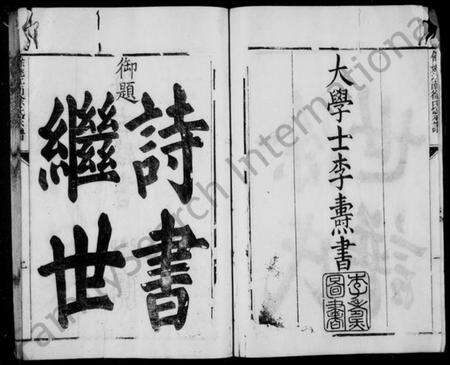 大學士李燾書
御題
詩書
繼世
FamilySearch International